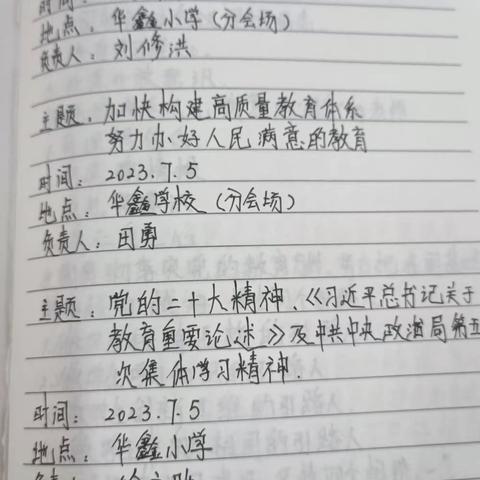 时间:
地点: 华鑫小学(分会场)
负责人: 刘修洪
主题: 加快构建高质量教育体系
努力办好人民满意的教育
时间: 2023.7.5
地点: 华鑫学校(分会场)
负责人: 田勇
主题: 党的二十大精神、《习近平总书记关于
教育重要论述》及中共中央政治局第五
次集体学习精神.
时间: 2023.7.5
地点: 华鑫小学